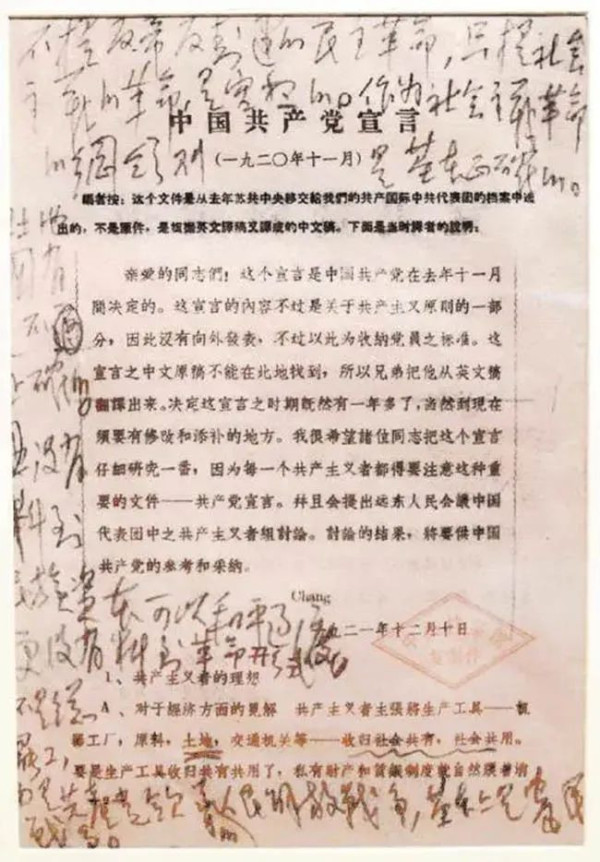 不提反帝反封建的民主革命,只提社会
主义的革命,是空想的。作为社会主义革命
的纲领则是基本正确的。
中国共产党宣言
(一九二〇年十一月)
編者按:这个文件是从去年苏共中央移交給我們的共产国际中共代表团的档案中选
出的,不是原件,是根据英文譯稿又譯成的中文稿。下面是当时譯者的說明:
亲爱的同志們!这个宣言是中国共产党在去年十一月
間决定的。这宣言的內容不过是关于共产主义原則的一部
分,因此沒有向外發表,不过以此为收納党員之标准。这
宣言之中文原稿不能在此地找到,所以兄弟把他从英文稿
翻譯出来。决定这宣言之时期既然有一年多了,当然到现在
須要有修改和添补的地方。我很希望諸位同志把这个宣言
仔細研究一番,因为每一个共产主义者都得要注意这种重
要的文件——共产党宣言。幷且会提出远东人民会議中国
代表团中之共产主义者組討論。討論的結果,將要供中国
共产党的参考和采納。
Chang
一九二一年十二月十日
但土地国有是不正确的。
没有料到
民族资本可以和平过渡。
更没有料到革命形式
不是总罢工,
而是共产党领导的人民解放战争,基本上是农民
战争。
1、共产主义者的理想
A、对于經济方面的見解 共产主义者主張將生产工具——机
器工厂,原料,土地,交通机关等——收归社会共有,社会共用。
要是生产工具收归共有共用了,私有財产和賃銀制度就自然跟着消